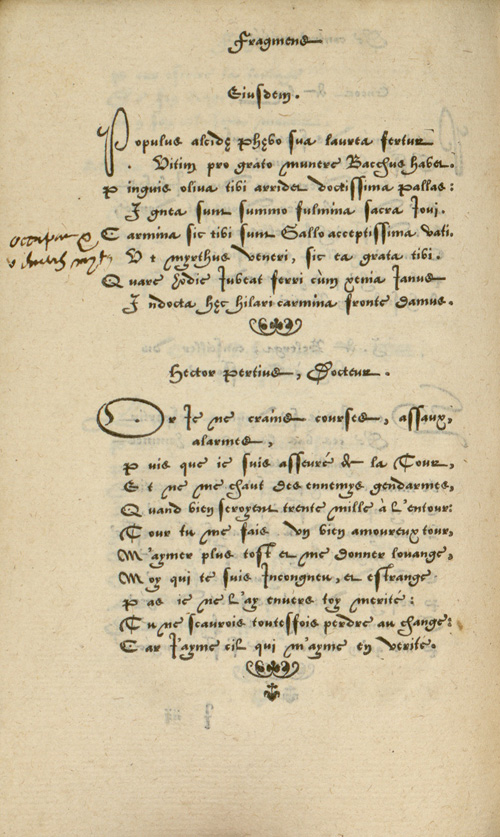 Fragmens
Eiusdem.
Populus alcidę phębo sua laurea fertur
Vitim pro grato munere Bacchus habet.
Pinguis oliva tibi arridet doctissima pallas:
Ignea sunt summo fulmina sacra Ioui.
Carmina sic tibi sunt Gallo acceptissima vati.
Ut myrthus veneri, sic ea grata tibi.
Quare hodie Iubeat ferri cùm xenia Ianus
Indocta hęc hilari carmina fronte damus.
Hector pertius, Docteur.
Or Ie ne crains courses, assaux,
alarmes,
Puis que ie suis asseuré de la Tour,
Et ne me chaut des ennemys gendarmes,
Quand bien seroyent trente mille à L'entour:
Tour tu me fais vn bien amoureux tour,
M'aymer plus tost et me donner louange,
Moy qui te suis Incongneu, et estrange
Pas ie ne L'ay enuers toy merité:
Tu ne scaurois toutesfois perdre au change:
Car J'ayme cil qui m'ayme en verité.